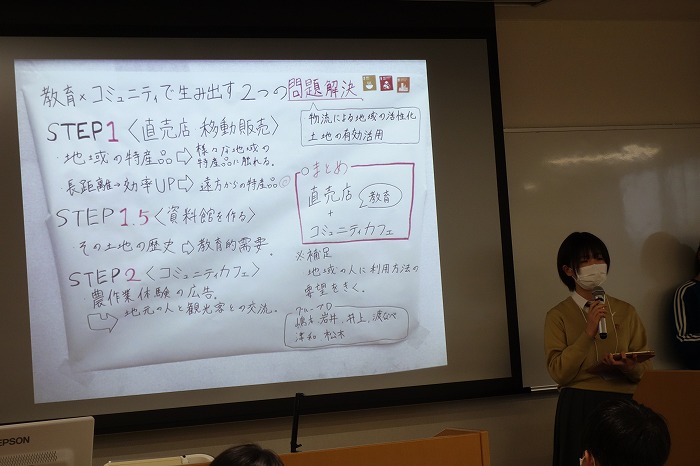 教育×コミュニティで生み出す2つの問題解決
物流による地域の活性化
土地の有効活用
STEP1〈直売店 移動販売〉
・地域の特産品⇨様々な地域の特産品に触れる。
長距離→効率UP⇨遠方からの特産品
STEP1.5〈資料館を作る〉
・その土地の歴史⇨教育的需要.
STEP2〈コミュニティカフェ〉
農作業体験の広告.
地元の人と観光客との交流.
まとめ
直売店
教育
+
コミュニティカフェ
※補足
地域の人に利用方法の
要望をきく.
岩井、井上、渡なべ
松木
EPSON